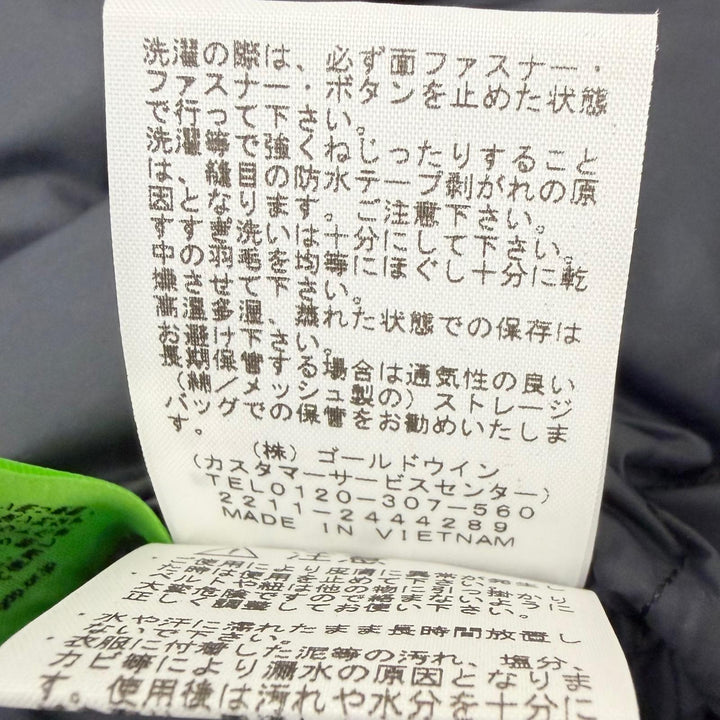 洗濯の際は、必ず面ファスナー・
ファスナー・ボタンを止めた状態
で行って下さい。
洗濯等で強くねじったりすること
は、縫目の防水テープ剥がれの原
因となります。ご注意下さい。
すすぎ洗いは十分にして下さい。
中の羽毛を均等にほぐし十分に乾
燥させて下さい。
高温多湿、蒸れた状態での保存は
お避け下さい。
長期保管する場合は通気性の良い
(綿/メッシュ製の)ストレージ
バッグでの保管をお勧めいたしま
す。
(株)ゴールドウイン
(カスタマーサービスセンター)
TEL0120-307-560
2211-2444289
MADE IN VIETNAM
注意
・使用により皮膚に異常が発生し
た時は使用を止めて下さい。
ベルトや紐は他の物に引っ掛かり
大変危険ですので絡まぬように
正しく調整してお使い下さい。
・水や汗に濡れたまま長時間放置し
ないで下さい。
・衣服に付着した泥等の汚れ、塩分、
カビ等により漏水の原因となりま
す。使用後は汚れや水分を十分に